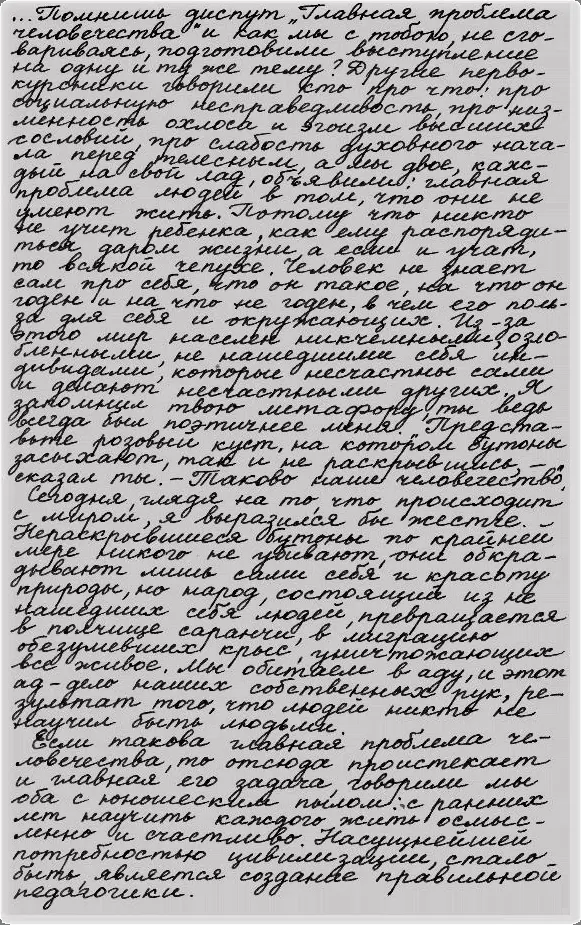 ...Помнишь диспут „Главная проблема
человечества" и как мы с тобою, не сго-
вариваясь, подготовили выступление
на одну и ту же тему? Другие перво-
курсники говорили кто про что: про
социальную несправедливость, про низ-
менность охлоса и эгоизм высших
сословий, про слабость духовного нача-
ла перед телесным, а мы двое, каж-
дый на свой лад, объявили: главная
проблема людей в том, что они не
умеют жить. Потому что никто
не учит ребенка, как ему распоряди-
ться даром жизни, а если и учат,
то всякой чепухе. Человек не знает
сам про себя, кто он такое, на что он
годен и на что не годен, в чем его поль-
за для себя и окружающих. Из-за
этого мир населен никчемными, озло-
бленными, не нашедшими себя ин-
дивидами, которые несчастны сами
и делают несчастными других. Я
запомнил твою метафору, ты ведь
всегда был поэтичнее меня. "Предста-
вьте розовый куст, на котором бутоны
засыхают, так и не раскрывшись, –
сказал ты. – Таково наше человечество".
Сегодня, глядя на то, что происходит
с миром, я выразился бы жестче. –
Нераскрывшиеся бутоны по крайней
мере никого не убивают, они обкра-
дывают лишь сами себя и красоту
природы, но народ, состоящий из не
нашедших себя людей, превращается
в полчище саранчи, в миграцию
обезумевших крыс, уничтожающих
все живое. Мы обитаем в аду, и этот
ад – дело наших собственных рук, ре-
зультат того, что людей никто не
научил быть людьми.
Если такова главная проблема че-
ловечества, то отсюда проистекает
и главная его задача, говорили мы
оба с юношеским пылом: с ранних
лет научить каждого жить осмыс-
ленно и счастливо. Насущнейшей
потребностью цивилизации, стало
быть, является создание правильной
педагогики.